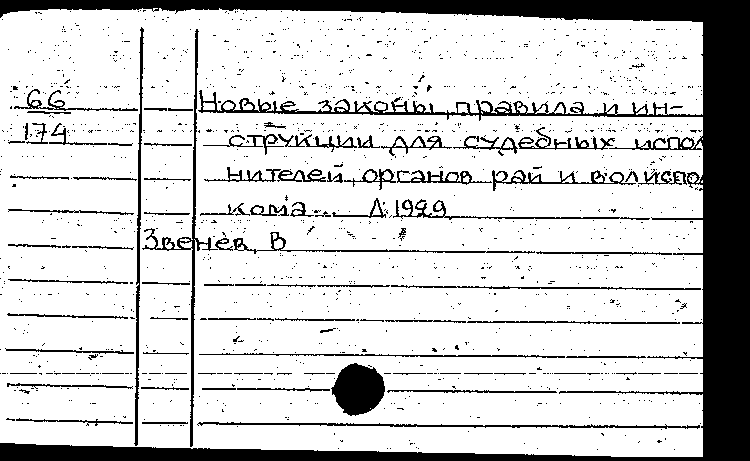 66
174
Новые законы, правила и ин-
струкции для судебных испол
нителей, органов рай и волиспо
кома... Л. 1929.
Звенев, В